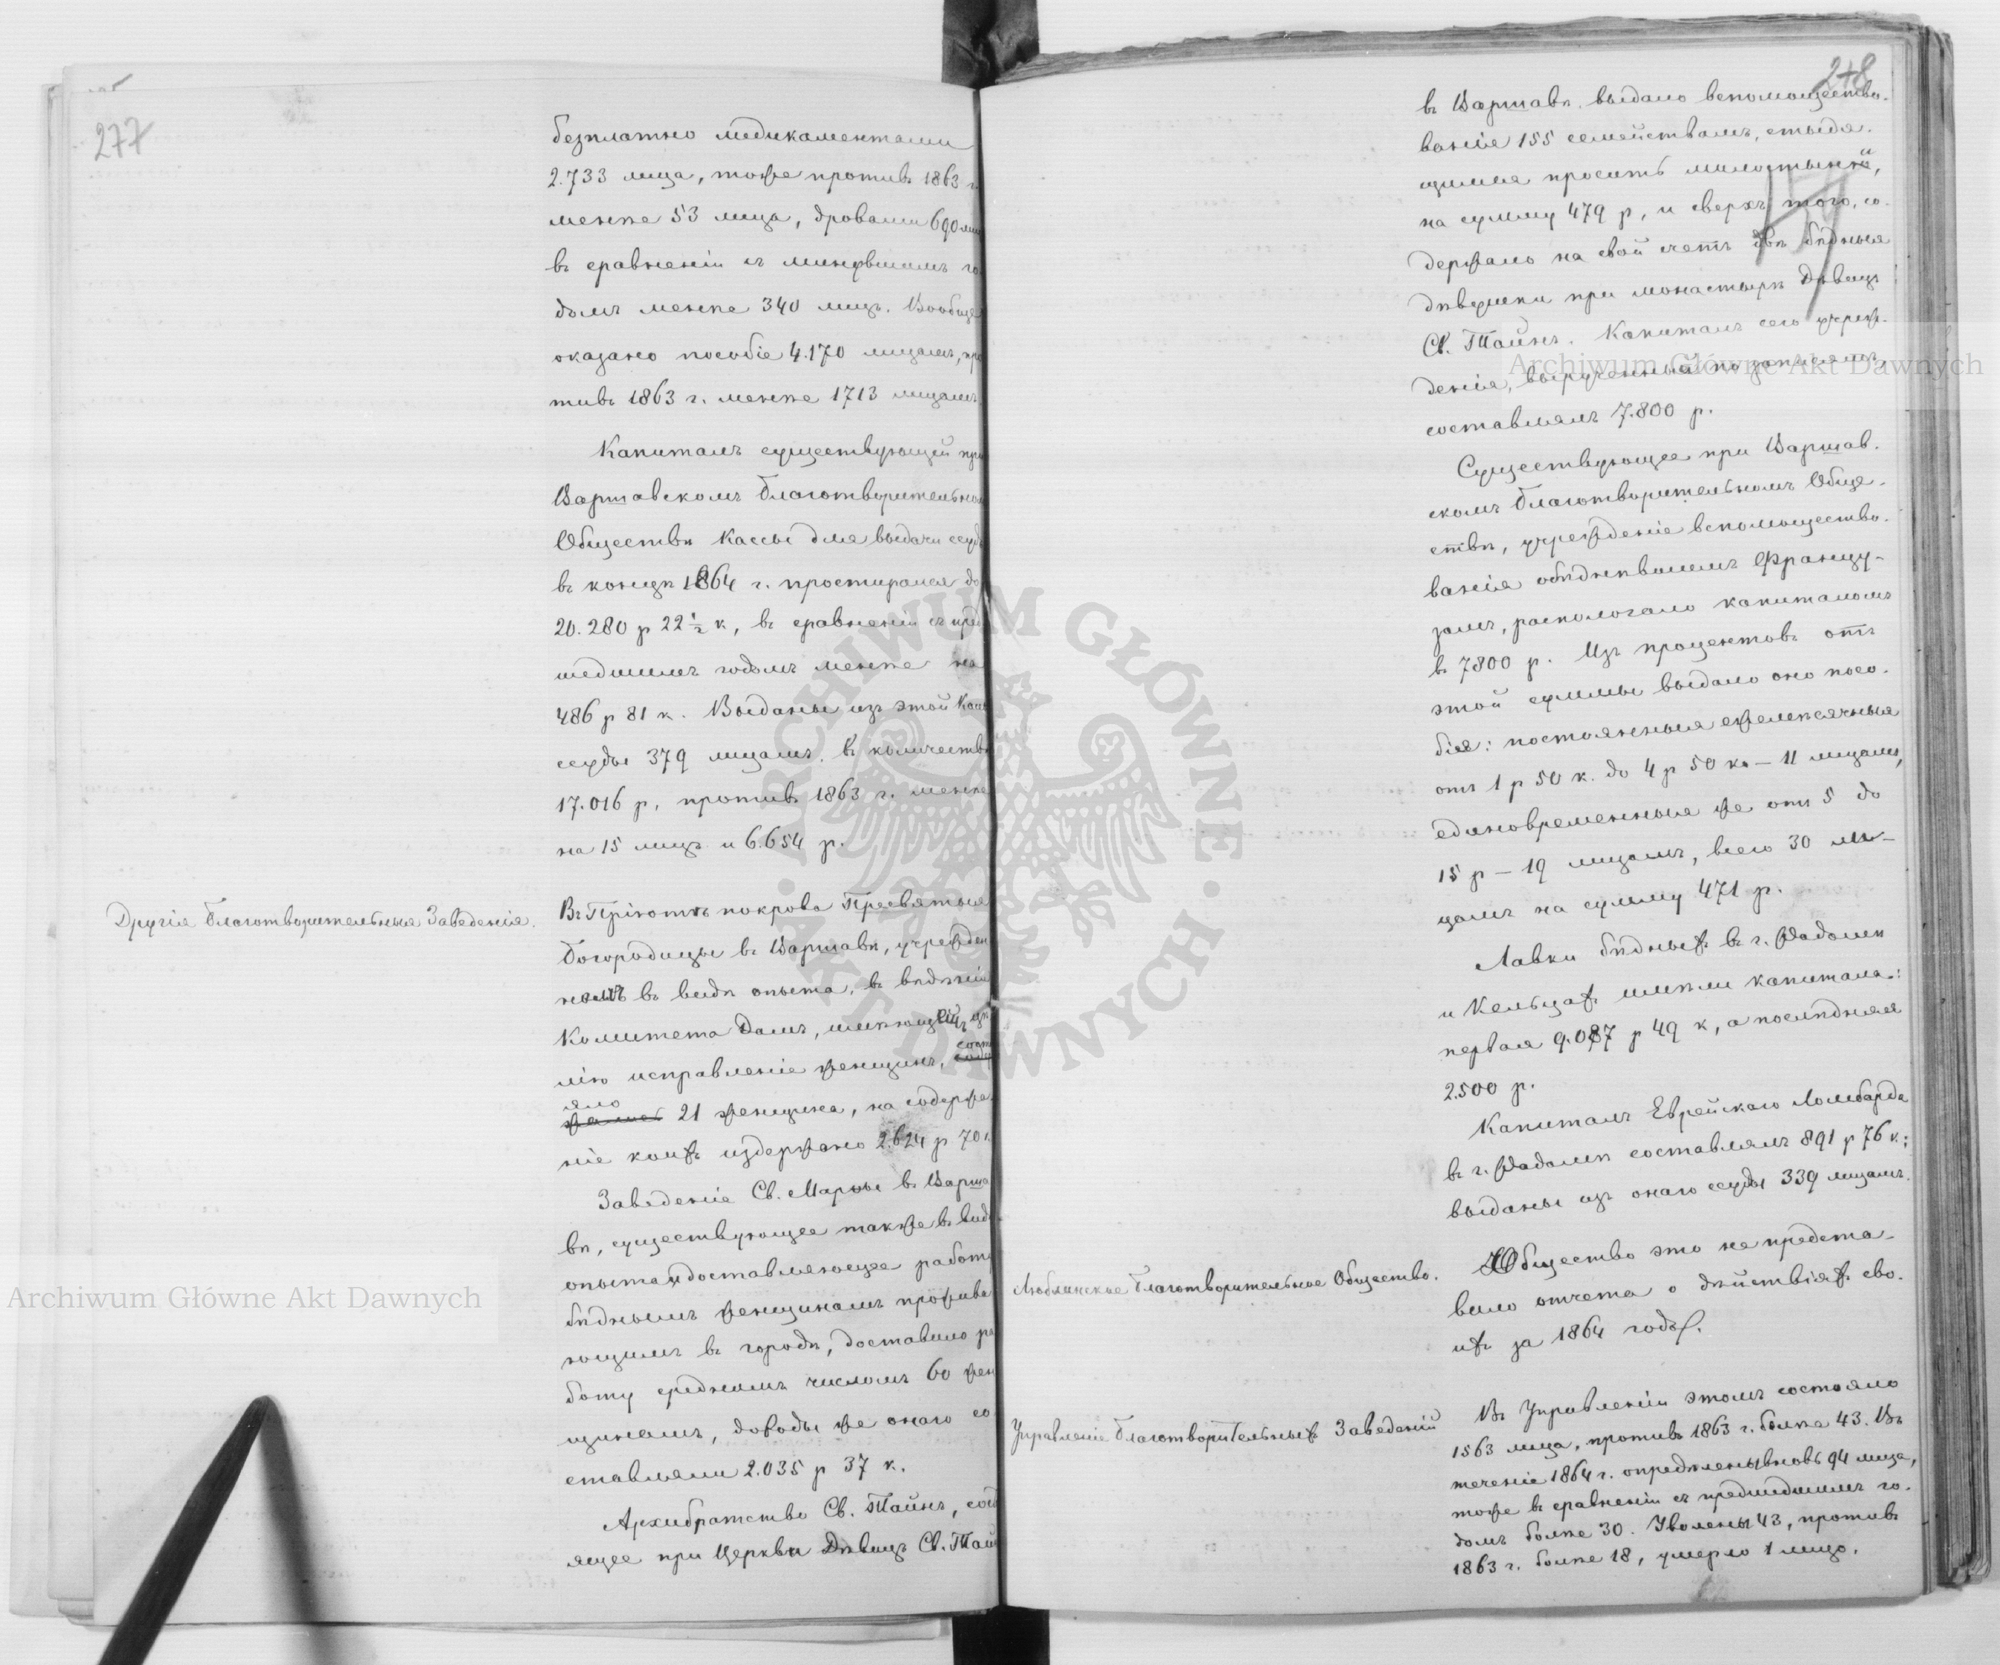 277
безплатно медикаментами
2.733 лица, тоже противъ 1863 г.
менѣе 53 лица, дровами 690 лиц
въ сравненіи съ минувшимъ го
домъ менѣе 340 лицъ. Вообще
оказано пособіе 4.170 лицамъ, про
тивъ 1863 г. менѣе 1713 лицамъ
Капиталъ существующей при
Варшавскомъ Благотворительном
Обществѣ Кассы для выдачи ссудъ
въ концѣ 1864 г. простирался до
20.280 р 22 1/2 к, въ сравненіи съ пред
шедшимъ годомъ менѣе на
486 р 81 к. Выданы изъ этой Касс
ссуды 379 лицамъ въ количеств
17.016 р, противъ 1863 г. менѣе
на 15 лицъ и 6.654 р.
Другія Благотворительныя Заведенія.
Въ Пріютѣ покрова Пресвятыя
Богородицы в Варшавѣ, учрежден
номъ въ видѣ опыта, въ вѣдѣніи
Комитета Дамъ, имѣющ цѣ
лію исправленіе женщинъ, сост
яло
21 женщина, на содержа
ніе коихъ издержано 2.624 р 70 к
Заведеніе Св. Марты въ Варша
вѣ, существующее также въ видѣ
опыта и доставляющее работ
бѣднымъ женщинамъ прожива
ющимъ въ городѣ, доставило ра
боту среднимъ числомъ 60 жен
щинамъ, доходы же онаго со
ставляли 2.035 р 37 к.
Архибратство Св. Таинъ, сост
ящее при Церкви Дѣвицъ Св. Таин
248
въ Варшавѣ, выдало вспомощество-
ваніе 155 семействамъ, стыдя-
щимся просить милостыни,
на сумму 479 р, и сверхъ того, со-
держало на свой счетъ двѣ бѣдныя
дѣвушки при монастырѣ Дѣвицъ
Св. Таинъ. Капиталъ сего учреж-
денія, вырученный по записямъ,
составлялъ 7.800 р.
Существующее при Варшав-
скомъ Благотворительномъ Обще-
ствѣ, учрежденіе вспомощество-
ванія обѣднѣвшимъ Францу-
замъ, распологало капиталомъ
въ 7800 р. Изъ процентовъ отъ
этой суммы выдало оно посо-
бія: постоянныя ежемѣсячныя
отъ 1 р 50 к. до 4 р 50 к. – 11 лицамъ,
единовременныя же отъ 5 до
15 р – 19 лицамъ, всего 30 ли-
цамъ на сумму 471 р.
Лавки бѣдныхъ въ г. Радомѣ
и Кельцахъ имѣли капитала:
первая 9.087 р 49 к, а послѣдняя
2500 р.
Капиталъ Еврейскаго Ломбарда
въ г. Радомѣ составлялъ 891 р 76 к;
выданы изъ онаго ссуды 339 лицамъ.
Люблинское Благотворительное Общество.
Общество это не предста-
вило отчета о дѣйствіяхъ сво-
ихъ за 1864 годъ.
Управленіе Благотворительныхъ Заведеній
Въ Управленіи этомъ состояло
1563 лица, противъ 1863 г. болѣе 43. Въ
теченіе 1864 г. опредѣлены вновь 94 лица,
тоже въ сравненіи съ предшедшимъ го-
домъ болѣе 30. Уволены 43, противъ
1863 г. болѣе 18, умерло 1 лицо.
Archiwum Główne Akt Dawnych
Archiwum Główne Akt Dawnych
ARCHIWUM GŁÓWNE · AKT DAWNYCH ·